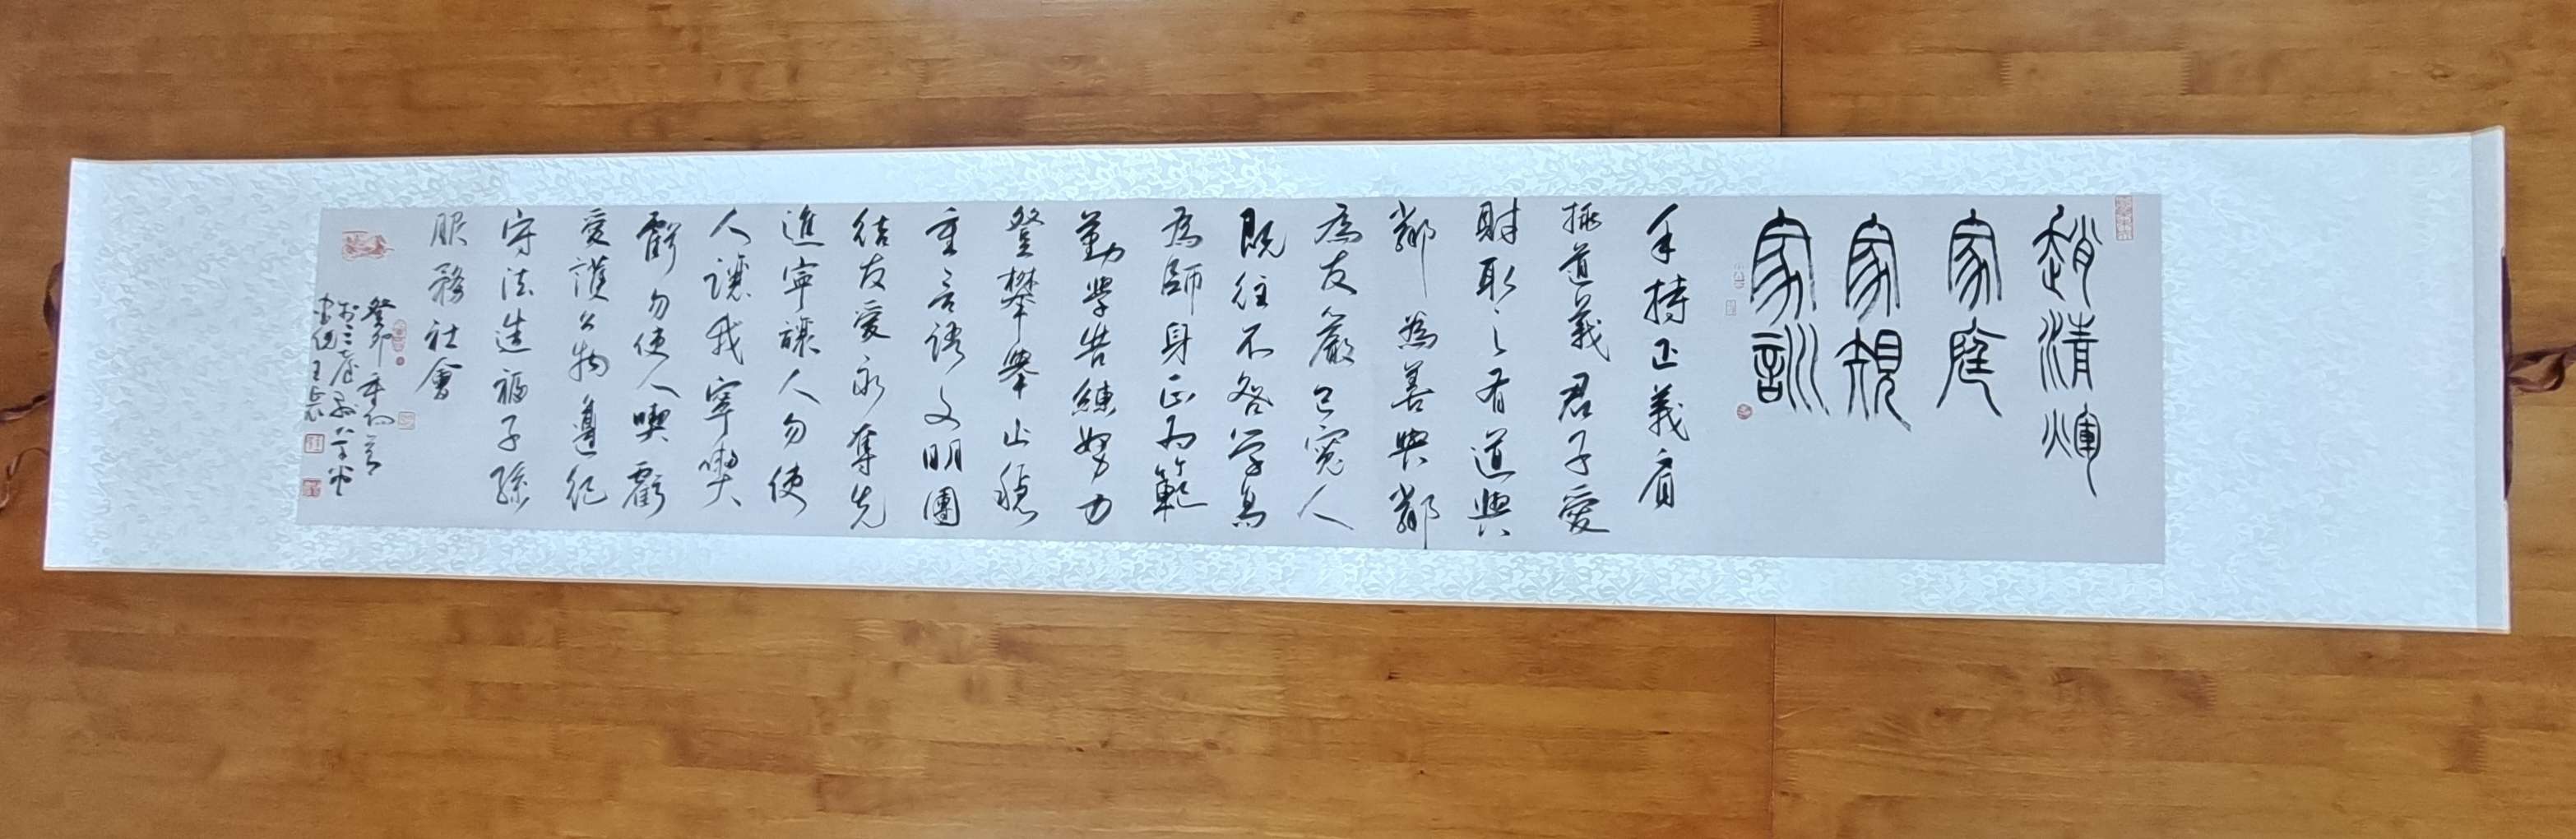 趙清煇
家庭
家規
家訓
手持正義肩
擔道義君子愛
財取之有道與
鄰為善與鄰
為友嚴己寬人
既往不咎學為
為師身正為範
勤學苦練努力
登攀舉止穩
重言語文明團
結友愛永奪先
進寧讓人勿使
人讓我寧喫
虧勿使人喫虧
愛護公物遵紀
守法造福子孫
服務社會
癸卯年初音